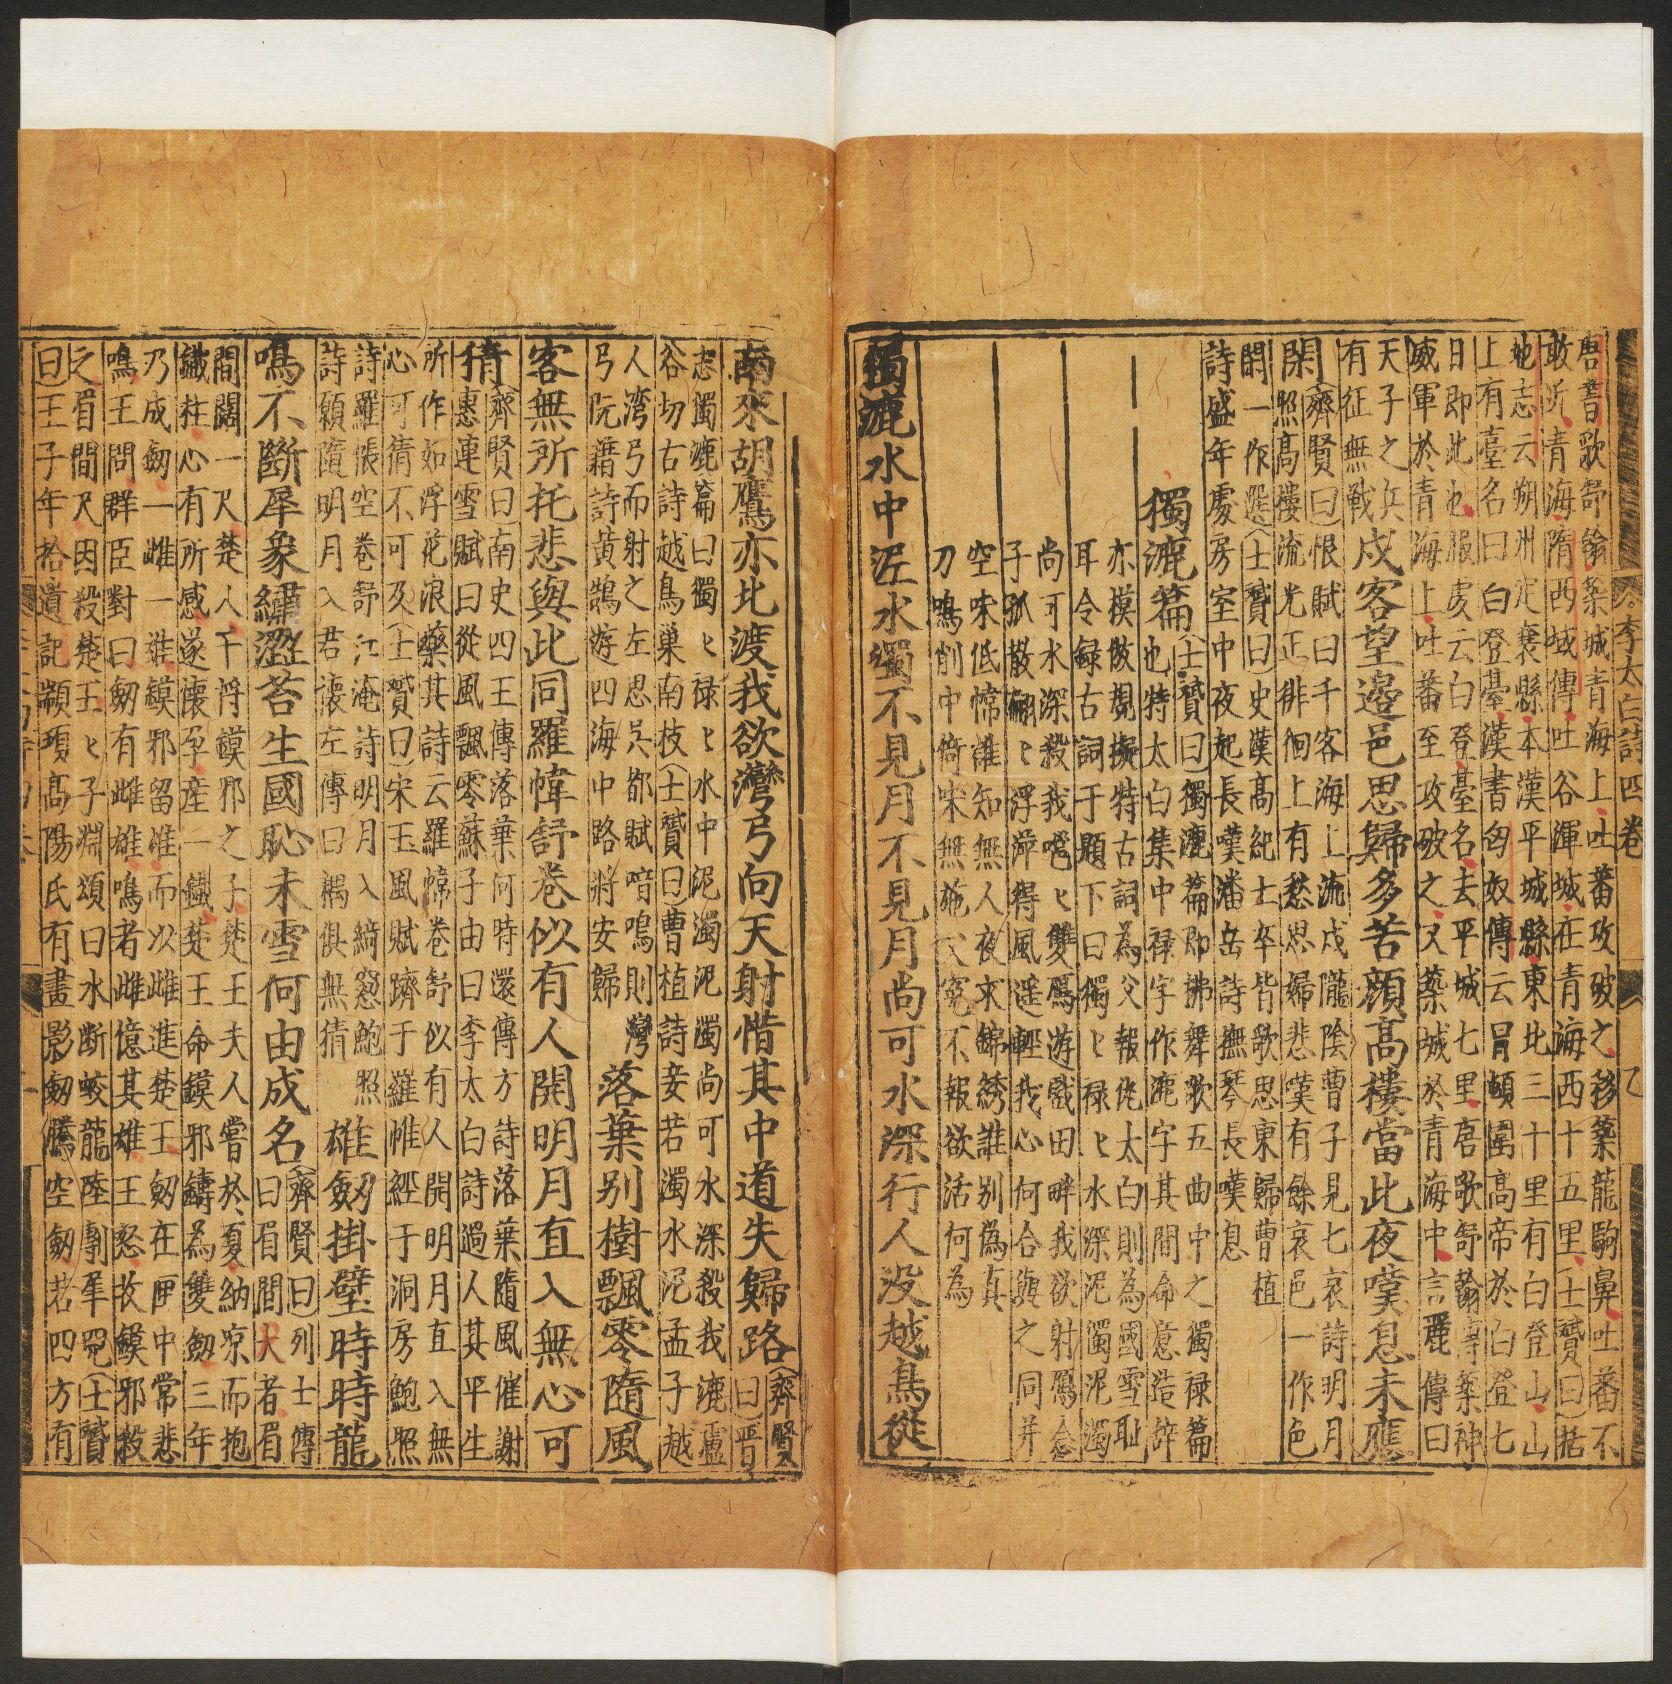 李太白詩四卷
唐書歌舒翰築城青海上吐蕃攻破之移築龍駒島吐蕃不
敢近青海隋西域傳吐谷渾城在青海西十五里士贇曰括
地志云朔州定襄縣本漢平城縣東北三十里有白登山山
上有臺名曰白登臺漢書匈奴傳云冒頓圍高帝於白登七
日即此也服虔云白登臺名去平城七里唐歌舒翰傳築神
威軍於青海上吐蕃至攻破之又築城於青海中言麗傳曰
天子之兵
有征無戰
戍客望邊邑思歸多苦顔高樓當此夜嘆息未應
閑
齊賢曰恨賦曰千客海上流戍隴陰曹子見七哀詩明月
照高樓流光正徘徊上有愁思婦悲嘆有餘哀邑一作色
閑一作還士贇曰史漢高紀士卒皆歌思東歸曹植
詩盛年處房室中夜起長嘆潘岳詩撫琴長嘆息
獨漉篇
士贇曰獨漉篇即拂舞歌五曲中之獨祿篇
也特太白集中祿字作漉字其間命意造辭
亦模倣規擬特古詞為父報仇太白則為國雪耻
耳今録古詞于題下曰獨ヒ祿ヒ水深泥濁泥濁
尚可水深殺我噰ヒ雙鴈遊戲田畔我欲射鴈念
子孤散翩ヒ浮萍得風遥輕我心何合與之同并
空床低幃誰知無人夜衣錦綉誰別偽真
刀鳴削中倚床無施父冤不報欲活何為
獨漉水中泥水濁不見月不見月尚可水深行人没越鳥從
南來胡鷹亦北渡我欲灣弓向天射惜其中道失歸路
齊賢
曰晋
志獨漉篇曰獨ヒ祿ヒ水中泥濁泥濁尚可水深殺我漉盧
谷切古詩越鳥巢南枝士贇曰曹植詩妾若濁水泥孟子越
人灣弓而射之左思吴都賦喑鳴則灣
弓阮籍詩黄鵠游四海中路將安歸
落葉别樹飄零隨風
客無所托悲與此同羅幃舒卷似有人開明月直入無心可
猜
齊賢曰南史四王傳落葉何時還傳方詩落葉隨風催謝
惠連雪賦曰從風飄零蘇子由曰李太白詩過人其平生
所作如浮花浪蘂其詩云羅幃卷舒似有人開明月直入無
心可猜不可及士贇曰宋玉風賦躋于羅帷經于洞房鮑照
詩羅帳空卷舒江淹詩明月入綺窓鮑照
詩願隨明月入君懷左傳曰耦俱無猜
雄劒掛壁時時龍
鳴不斷犀象繡澀苔生國恥未雪何由成名
齊賢曰列士傳
曰眉間犬者眉
間闊一尺楚人干將鏌邪之子楚王夫人嘗於夏納凉而抱
鐵柱心有所感遂懷孕産一鐵楚王命鏌邪鑄為雙劒三年
乃成劒一雌一雄鏌邪留雄而以雌進楚王劒在匣中常悲
鳴王問群臣對曰劒有雌雄鳴者雌憶其雄王怒收鏌邪殺
之眉間尺因殺楚王ヒ子淵頌曰水断蛟龍陸剸犀兕士贇
曰王子年拾遺記顓頊高陽氏有畫影劒騰空劒若四方有